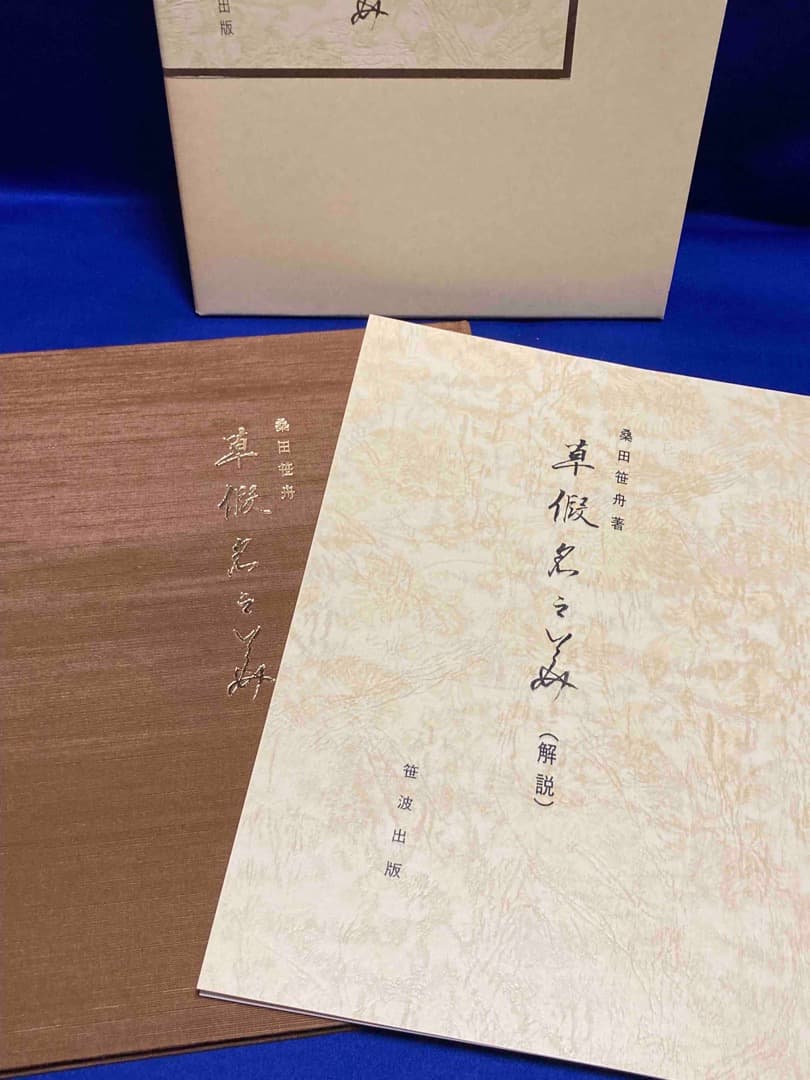 田出版
美
桑田笹舟
草假名之美
桑田笹舟著
草假名之美
(解説)
笹波出版